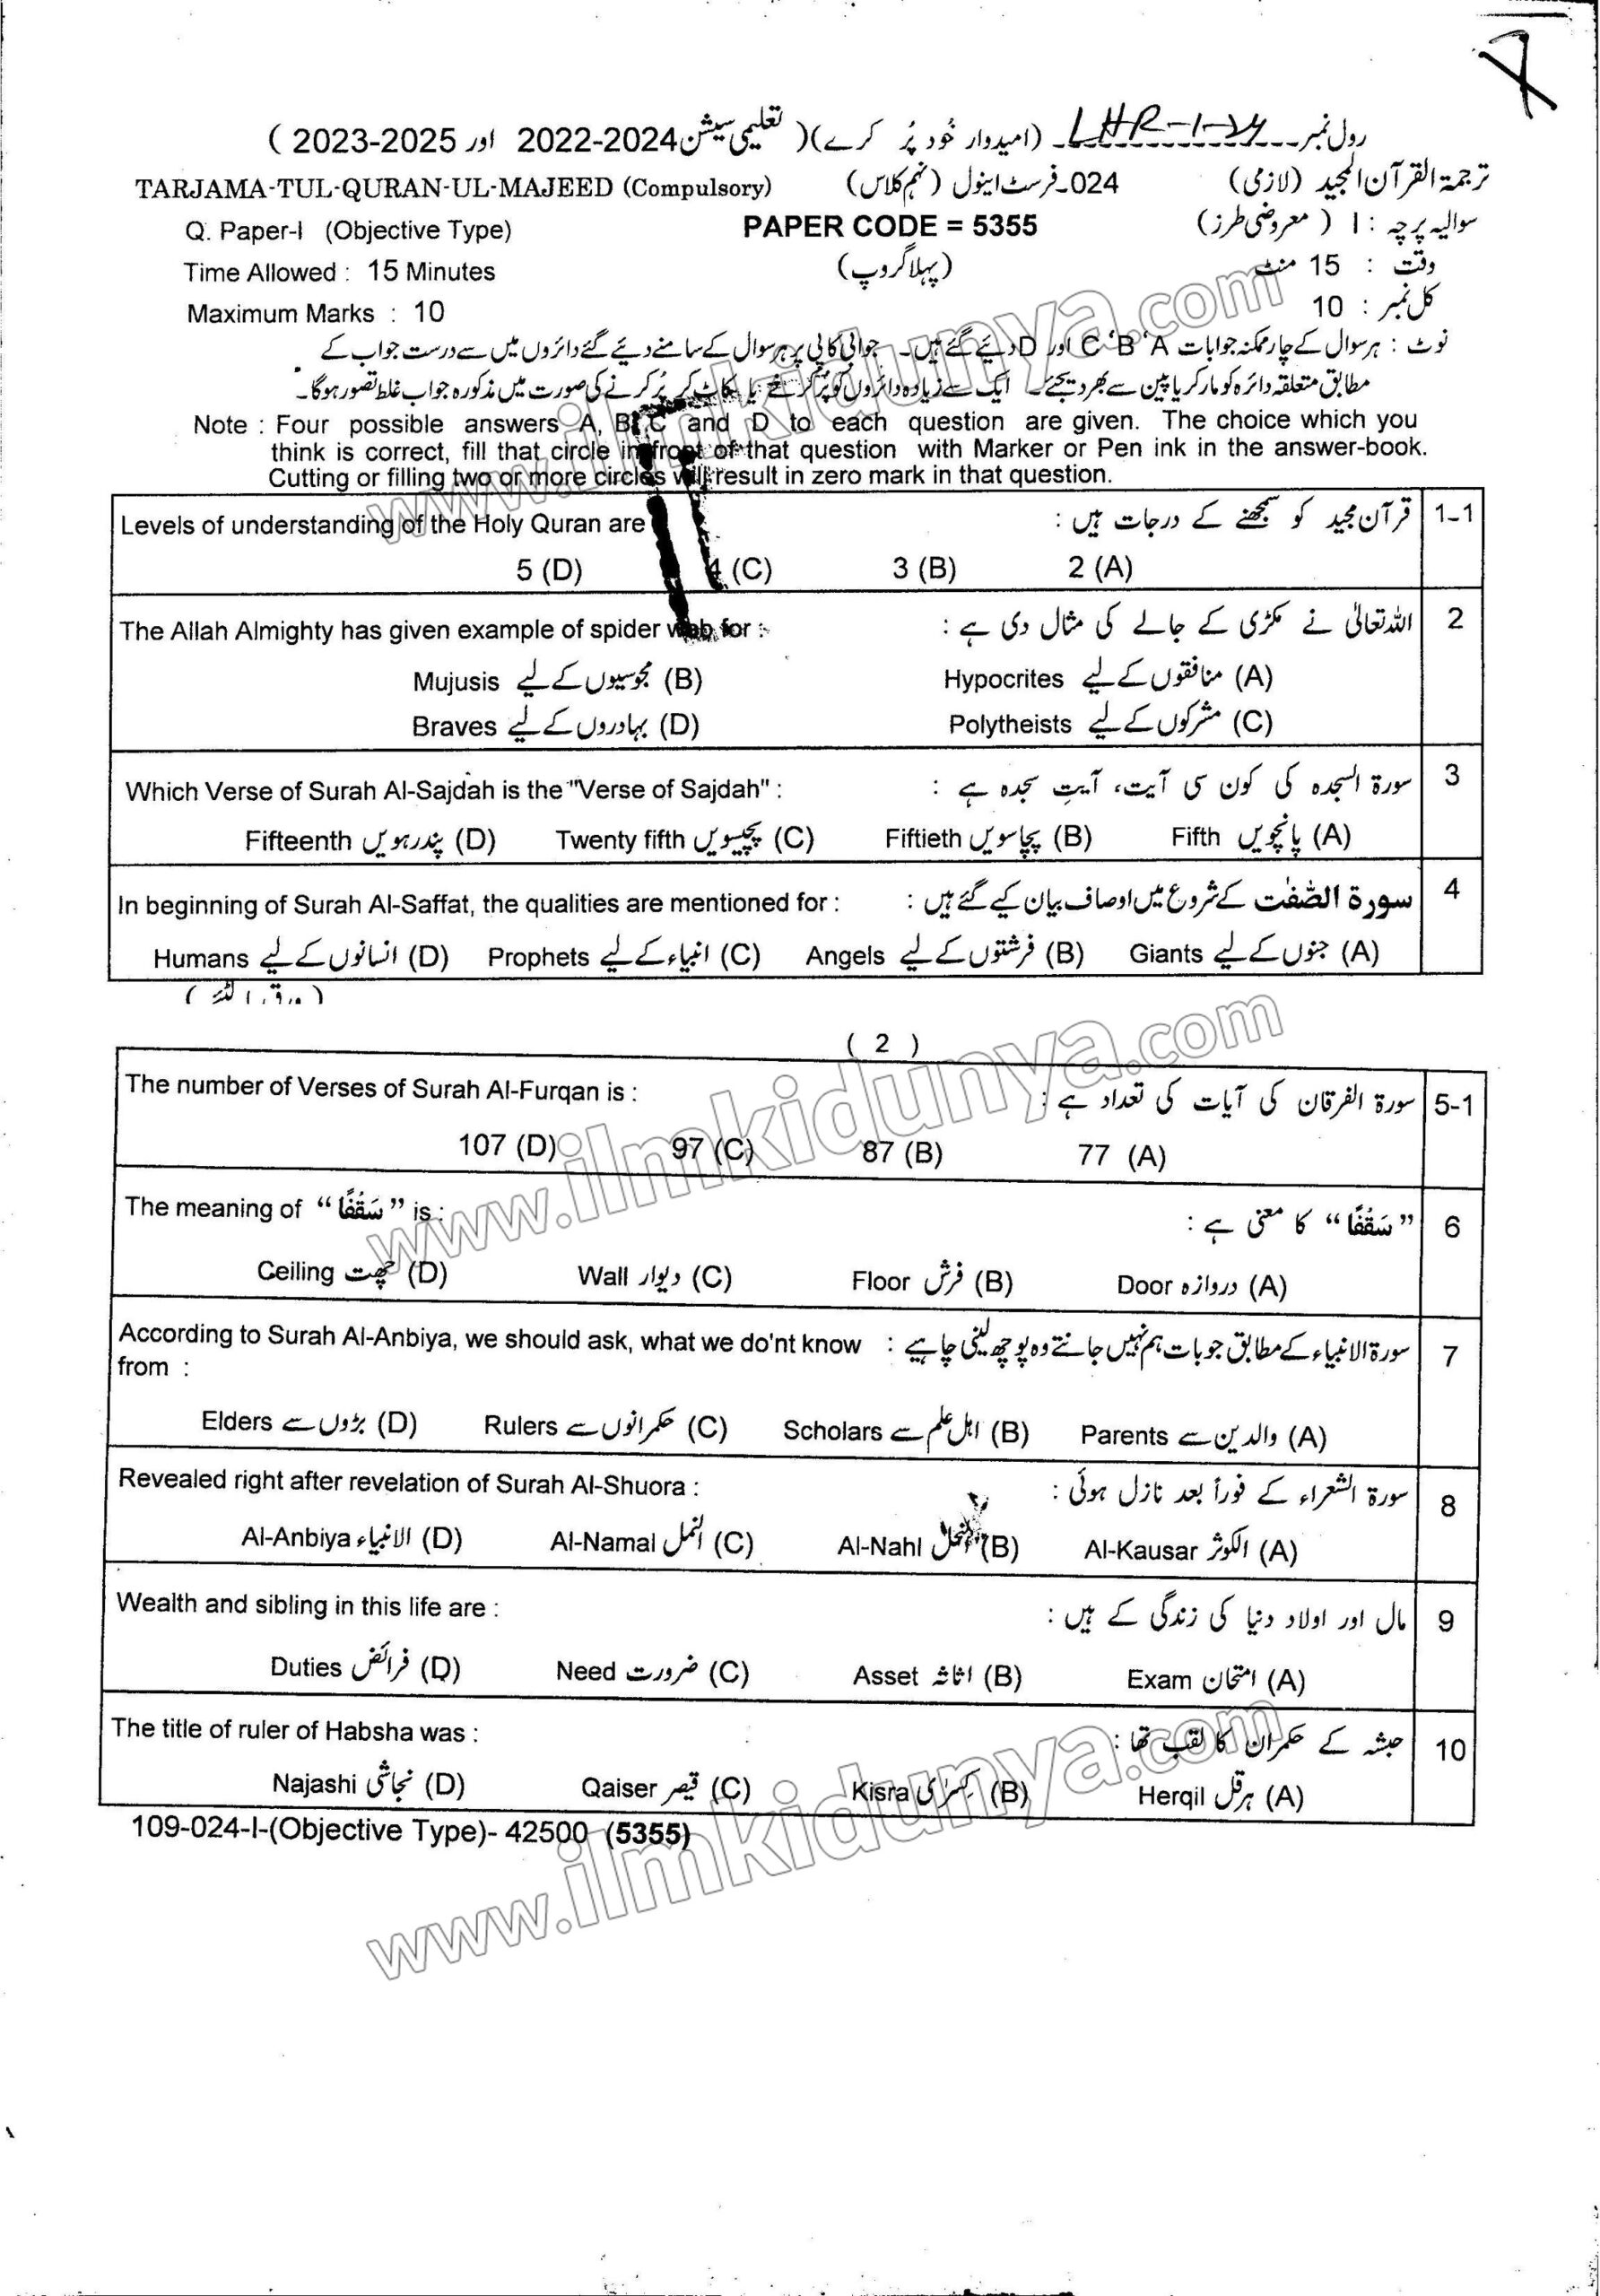 رول نمبر LHR-1-24 (امیدوار خُود پُر کرے) (تعلیمی سیشن 2022-2024 اور 2023-2025)
ترجمۃ القرآن المجید (لازمی) 024-فرسٹ اینول (نہم کلاس) TARJAMA-TUL-QURAN-UL-MAJEED (Compulsory)
سوالیہ پرچہ : I (معروضی طرز) PAPER CODE = 5355 Q. Paper-I (Objective Type)
وقت : 15 منٹ (پہلا گروپ) Time Allowed : 15 Minutes
کل نمبر : 10 Maximum Marks : 10
نوٹ : ہر سوال کے چار ممکنہ جوابات A ‘B ‘C اور D دیئے گئے ہیں۔ جوابی کاپی پر ہر سوال کے سامنے دیئے گئے دائروں میں سے درست جواب کے
مطابق متعلقہ دائرہ کو مارکر یا پین سے بھر دیجئے۔ ایک سے زیادہ دائروں کو پُر کرنے یا کاٹ کر پُر کرنے کی صورت میں مذکورہ جواب غلط تصور ہوگا۔
Note : Four possible answers A, B, C and D to each question are given. The choice which you
think is correct, fill that circle in front of that question with Marker or Pen ink in the answer-book.
Cutting or filling two or more circles will result in zero mark in that question.
1-1 قرآن مجید کو سمجھنے کے درجات ہیں : Levels of understanding of the Holy Quran are
2 (A) 3 (B) 4 (C) 5 (D)
2 اللہ تعالیٰ نے مکڑی کے جالے کی مثال دی ہے : The Allah Almighty has given example of spider web for :
(A) منافقوں کے لیے Hypocrites (B) مجوسیوں کے لیے Mujusis
(C) مشرکوں کے لیے Polytheists (D) بہادروں کے لیے Braves
3 سورۃ السجدہ کی کون سی آیت، آیتِ سجدہ ہے : Which Verse of Surah Al-Sajdah is the "Verse of Sajdah" :
(A) پانچویں Fifth (B) پچاسویں Fiftieth (C) پچیسویں Twenty fifth (D) پندرہویں Fifteenth
4 سورۃ الصّٰفّٰت کے شروع میں اوصاف بیان کیے گئے ہیں : In beginning of Surah Al-Saffat, the qualities are mentioned for :
(A) جنوں کے لیے Giants (B) فرشتوں کے لیے Angels (C) انبیاء کے لیے Prophets (D) انسانوں کے لیے Humans
(ورق الٹئے)
( 2 )
5-1 سورۃ الفرقان کی آیات کی تعداد ہے : The number of Verses of Surah Al-Furqan is :
77 (A) 87 (B) 97 (C) 107 (D)
6 ”سَقُفًا“ کا معنی ہے : The meaning of “سَقُفًا” is :
(A) دروازہ Door (B) فرش Floor (C) دیوار Wall (D) چھت Ceiling
7 سورۃ الانبیاء کے مطابق جو بات ہم نہیں جانتے وہ پوچھ لینی چاہیے : According to Surah Al-Anbiya, we should ask, what we do'nt know
from :
(A) والدین سے Parents (B) اہل علم سے Scholars (C) حکمرانوں سے Rulers (D) بڑوں سے Elders
8 سورۃ الشعراء کے فوراً بعد نازل ہوئی : Revealed right after revelation of Surah Al-Shuora :
(A) الکوثر Al-Kausar (B) النحل Al-Nahl (C) النمل Al-Namal (D) الانبیاء Al-Anbiya
9 مال اور اولاد دنیا کی زندگی کے ہیں : Wealth and sibling in this life are :
(A) امتحان Exam (B) اثاثہ Asset (C) ضرورت Need (D) فرائض Duties
10 حبشہ کے حکمران کا لقب تھا : The title of ruler of Habsha was :
(A) ہرقل Herqil (B) کسرٰی Kisra (C) قیصر Qaiser (D) نجاشی Najashi
109-024-I-(Objective Type)- 42500 (5355)
www.ilmkidunya.com
www.ilmkidunya.com
www.ilmkidunya.com